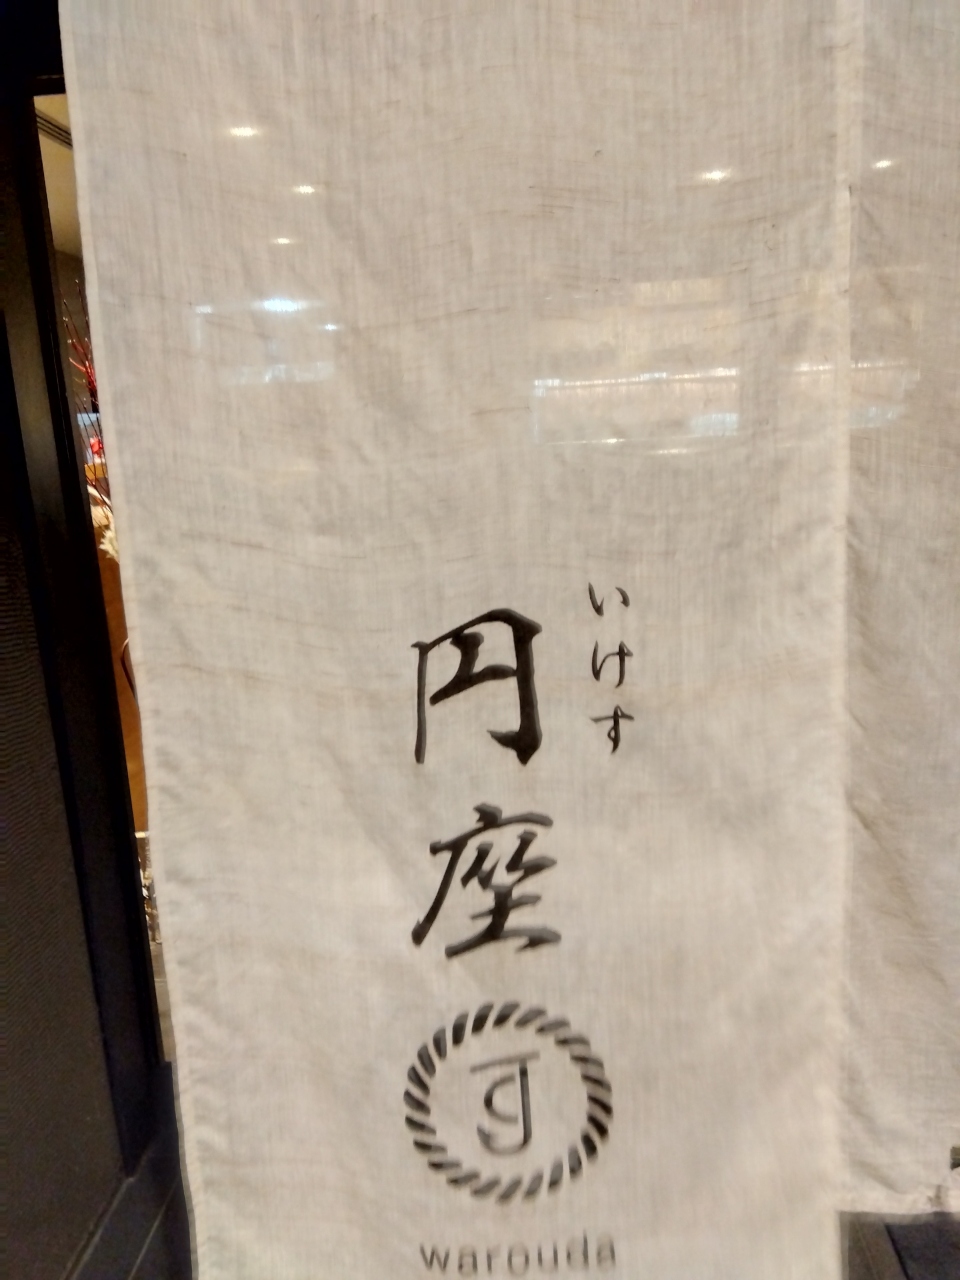 いけす
円座
warouda